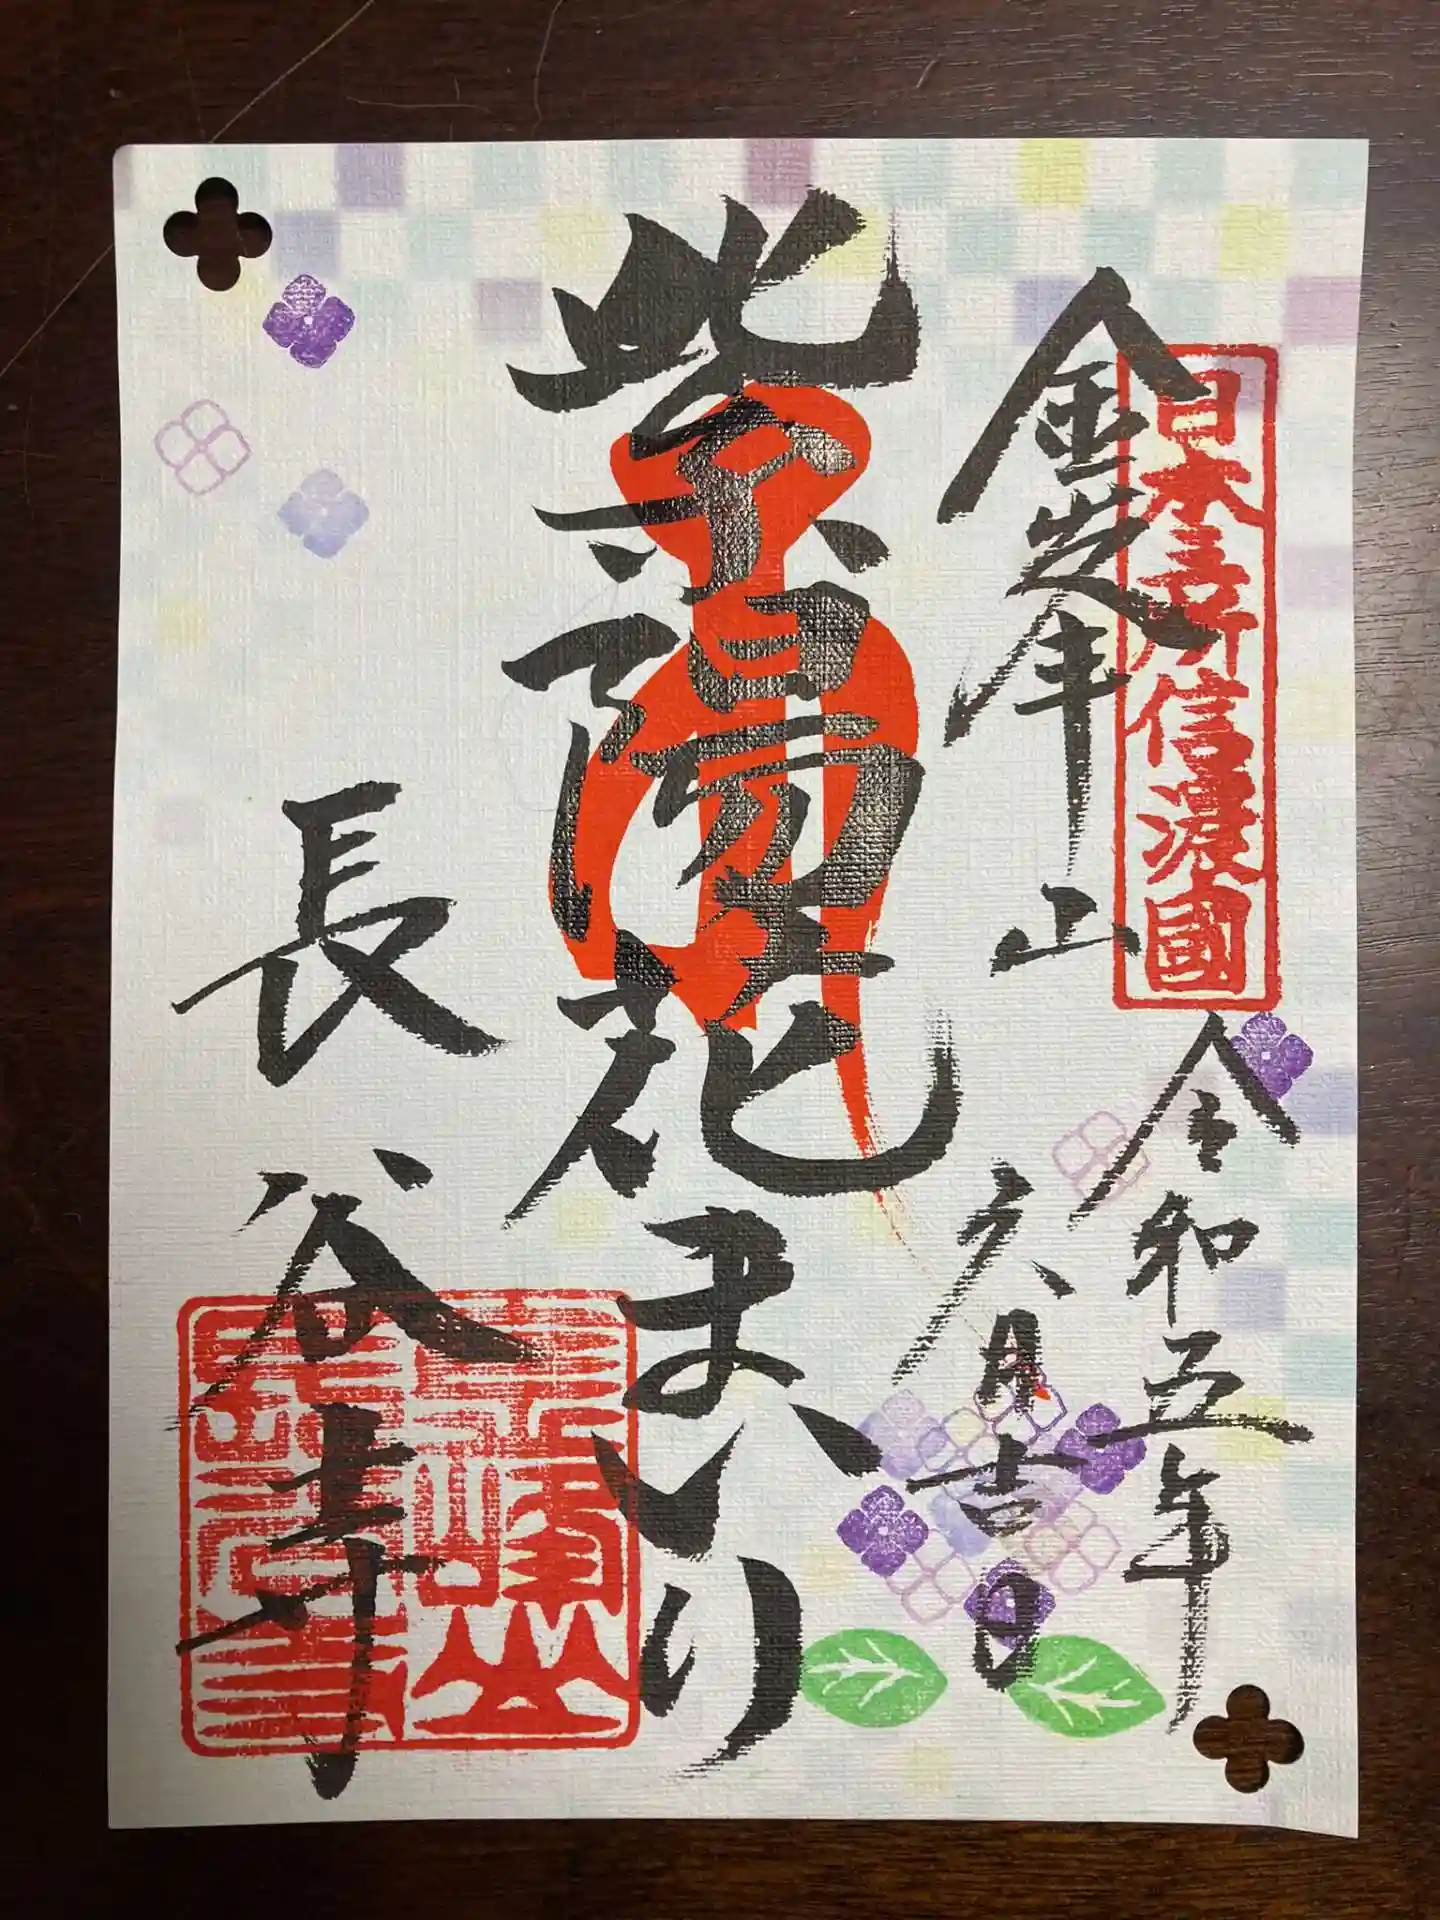 日本三所信濃國
金峯山
令和五年
六月吉日
紫陽花まいり
長谷寺